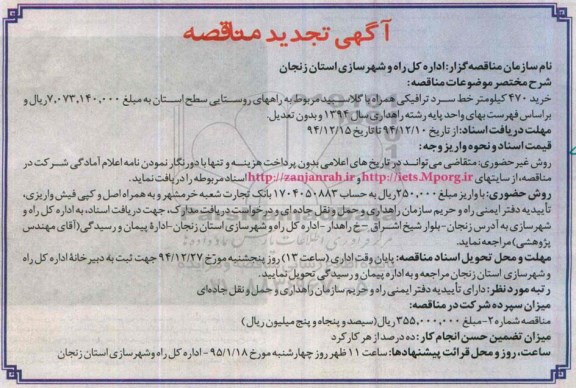 آگهی تجدید مناقصه
نام سازمان مناقصه گزار: اداره کل راه و شهرسازی استان زنجان
شرح مختصر موضوعات مناقصه:
خرید ۴۷۰ کیلومتر خط سرد ترافیکی همراه با گلاسبید مربوط به راههای روستایی سطح استان به مبلغ ۷,۰۷۳,۱۴۰,۰۰۰ ریال و
براساس فهرست بهای واحد پایه رشته راهداری سال ۱۳۹۴ و بدون تعدیل.
مهلت دریافت اسناد: از تاریخ ۹۴/۱۲/۱۰ تا تاریخ ۹۴/۱۲/۱۵
قیمت اسناد و نحوه واریز وجه:
روش غیر حضوری: متقاضی می‌تواند در تاریخ های اعلامی بدون پرداخت هزینه و تنها با دوربگار نمودن نامه اعلام آمادگی شرکت در
مناقصه، از سایتهای http://iets.Mporg.ir و http://zanjanrah.ir اسناد مربوطه را دریافت نماید.
روش حضوری: با واریز مبلغ ۲۵۰,۰۰۰ ریال به حساب ۱۷۰۴۰۵۰۸۸۳ بانک تجارت شعبه خرمشهر و به همراه اصل و کپی فیش واریزی،
تأییدیه دفتر ایمنی راه و حریم سازمان راهداری و حمل و نقل جاده ای و درخواست دریافت مدارک، جهت دریافت اسناد، به اداره کل راه و
شهرسازی به آدرس زنجان- بلوار شیخ اشراق - خ راهدار - اداره کل راه و شهرسازی استان زنجان- ادارۀ پیمان و رسیدگی (آقای مهندس
پژوهشی) مراجعه نماید.
مهلت و محل تحویل اسناد مناقصه: پایان وقت اداری (ساعت ۱۳) روز پنجشنبه مورخ ۹۴/۱۲/۲۷ جهت ثبت به دبیرخانۀ اداره کل راه
و شهرسازی استان زنجان مراجعه و به اداره پیمان و رسیدگی تحویل نمایید.
رتبه مورد نظر: دارای تأییدیه دفتر ایمنی راه و حریم سازمان راهداری و حمل و نقل جاده‌ای
میزان سپرده شرکت در مناقصه:
مناقصه شماره ۲- مبلغ ۳۵۵,۰۰۰,۰۰۰ ریال (سیصد و پنجاه و پنج میلیون ریال)
میزان تضمین حسن انجام کار: ده درصد از هر کارکرد
ساعت، روز و محل قرائت پیشنهادها: ساعت ۱۱ ظهر روز چهارشنبه مورخ ۹۵/۱/۱۸ - اداره کل راه و شهرسازی استان زنجان